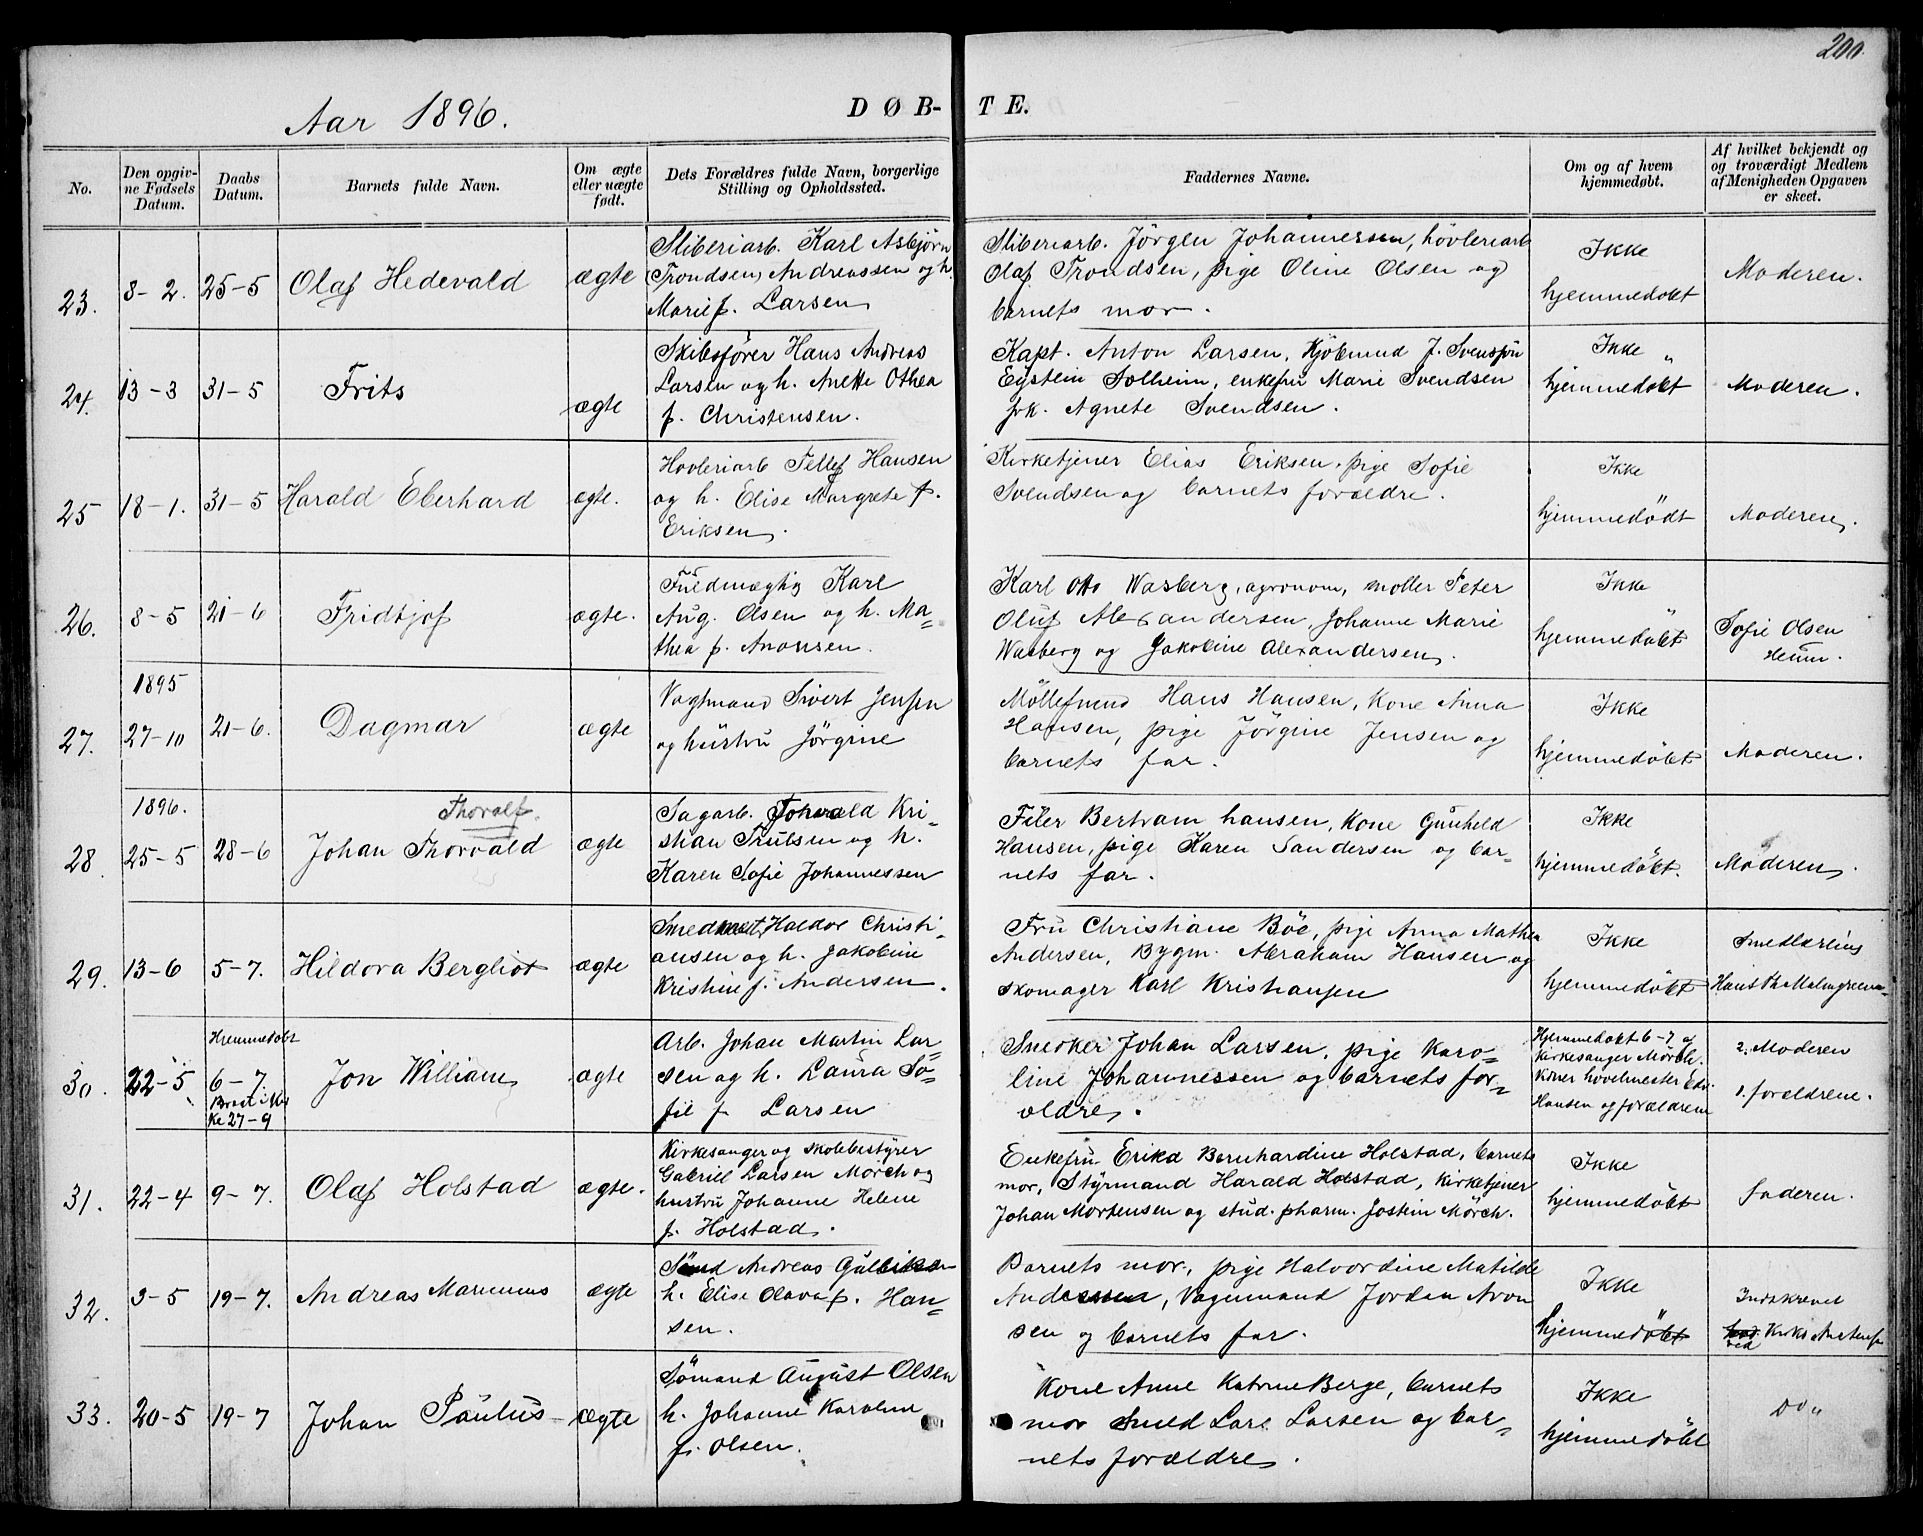 200.
Aar 1896.
DØB-
TE.
No.
Den opgiv-
ne Fødsels
Datum.
Daabs
Datum.
Barnets fulde Navn.
Om ægte
eller uægte
født.
Dets Forældres fulde Navn, borgerlige
Stilling og Opholdssted.
Faddernes Navne.
Om og af hvem
hjemmedøbt.
Af hvilket bekjendt og
og troværdigt Medlem
af Menigheden Opgaven
er skeet.
23.
8-2.
25-5
Olaf Hedevald
ægte
Sliberiarb. Karl Asbjørn
(Trondsen) Andreassen og h.
Marie f. Larsen
Sliberiarb. Jörgen Johannessen, hövleriarb
Olaf Trondsen, pige Oline Olsen og
barnets mor.
Ikke
hjemmedøbt
Moderen.
24.
13-3
31-5
Frits
ægte
Skibsfører Hans Andreas
Larsen og h. Anette Othea
f. Christensen.
Kapt. Anton Larsen, Kjöbmd J. Svensson
Eystein Solheim, enkefru Marie Svendsen
frk. Agnete Svendsen.
Ikke
hjemmedøbt
Moderen.
25
18-1.
31-5
Harald Eberhard
ægte.
Hovleriarb Tellef Hansen
og h. Elise Margrete f.
Eriksen.
Kirketjener Elias Eriksen, pige Sofie
Svendsen og barnets forældre.
Ikke
hjemmedøbt
Moderen.
26.
8-5
21-6
Fridtjof
ægte.
Fuldmægtig Karl
Aug. Olsen og h. Ma-
thea f. Aronsen.
Karl Otto Wasberg, agronom, moller Peter
Oluf Alexandersen, Johanne Marie
Wasberg og Jakobine Alexandersen.
Ikke
hjemmedøbt
Sofie Olsen
27.
1895
27-10
21-6.
Dagmar
ægte
Vogtmand Sivert Jensen
og hustru Jörgine
Möllesvend Hans Hansen, Kone Anna
Hansen, pige Jörgine Jensen og
barnets far.
Ikke
hjemmedøbt
Moderen.
28
1896.
25-5
28-6
Thoralf.
Johan Thorvald
ægte
Sagarb. Thorvald Kri-
stian Trulsen og h.
Karen Sofie Johannessen
Filer Bertram hansen, Kone Gunhild
Hansen, pige Karen Sandersen og bar-
nets far.
Ikke
hjemmedøbt.
Moderen.
29.
13-6
5-7.
Hildora Bergliot
ægte
Smedmest. Haldor Christi-
ansen og h. Jakobine
Kristine f. Andersen.
Fru Christiane Böe, pige Anna Mathea
Andersen, Bygm. Abraham Hansen og
skomager Karl Kristiansen
Ikke
hjemmedøbt
Smedlærling
Hans Th Malmgreen
30.
22-5
Hjemmedøbt
6-7.
Bragt i Kir
ke 27-9
Jon William
ægte
Arb. Johan Martin Lar-
sen og h. Laura So-
fie f Larsen
Snedker Johan Larsen, pige Karo-
line Johannessen og barnets for-
ældre.
Hjemmedøbt 6-7 af
kirkesanger Mörch
Koner hövelmester Edv.
Hansen og forældrene
2. Moderen
1. forældrene.
31.
22-4
9-7.
Olaf Holstad
ægte.
Kirkesanger og skolebestyrer
Gabriel Larsen Mörch og
hustru Johanne Helene
f. Holstad.
Enkefru Erika Bernhardine Holstad, barnets
mor, Styrmand Harald Holstad, Kirketjener
Johan Mortensen og stud. pharm. Jostein Mörch.
Ikke
hjemmedøbt
Faderen.
32.
3-5
19-7.
Andreas Marinius
ægte
Sömd Andreas Gulbiksen
h. Elise Olava f. Han-
sen.
Barnets mor, pige Halvordine Matilde
Andersen, Vognmand Jordan Aron
sen og barnets far.
Ikke
hjemmedøbt
Indskrevet
ved
33.
20-5
19-7
Johan Paulus
ægte
Sömand August Olsen
h. Johanne Karoline
f. Olsen.
Kone Anne Katrine Berge, barnets
mor Smed Lars Larsen og bar-
nets forældre.
Ikke
hjemmedøbt
Do "